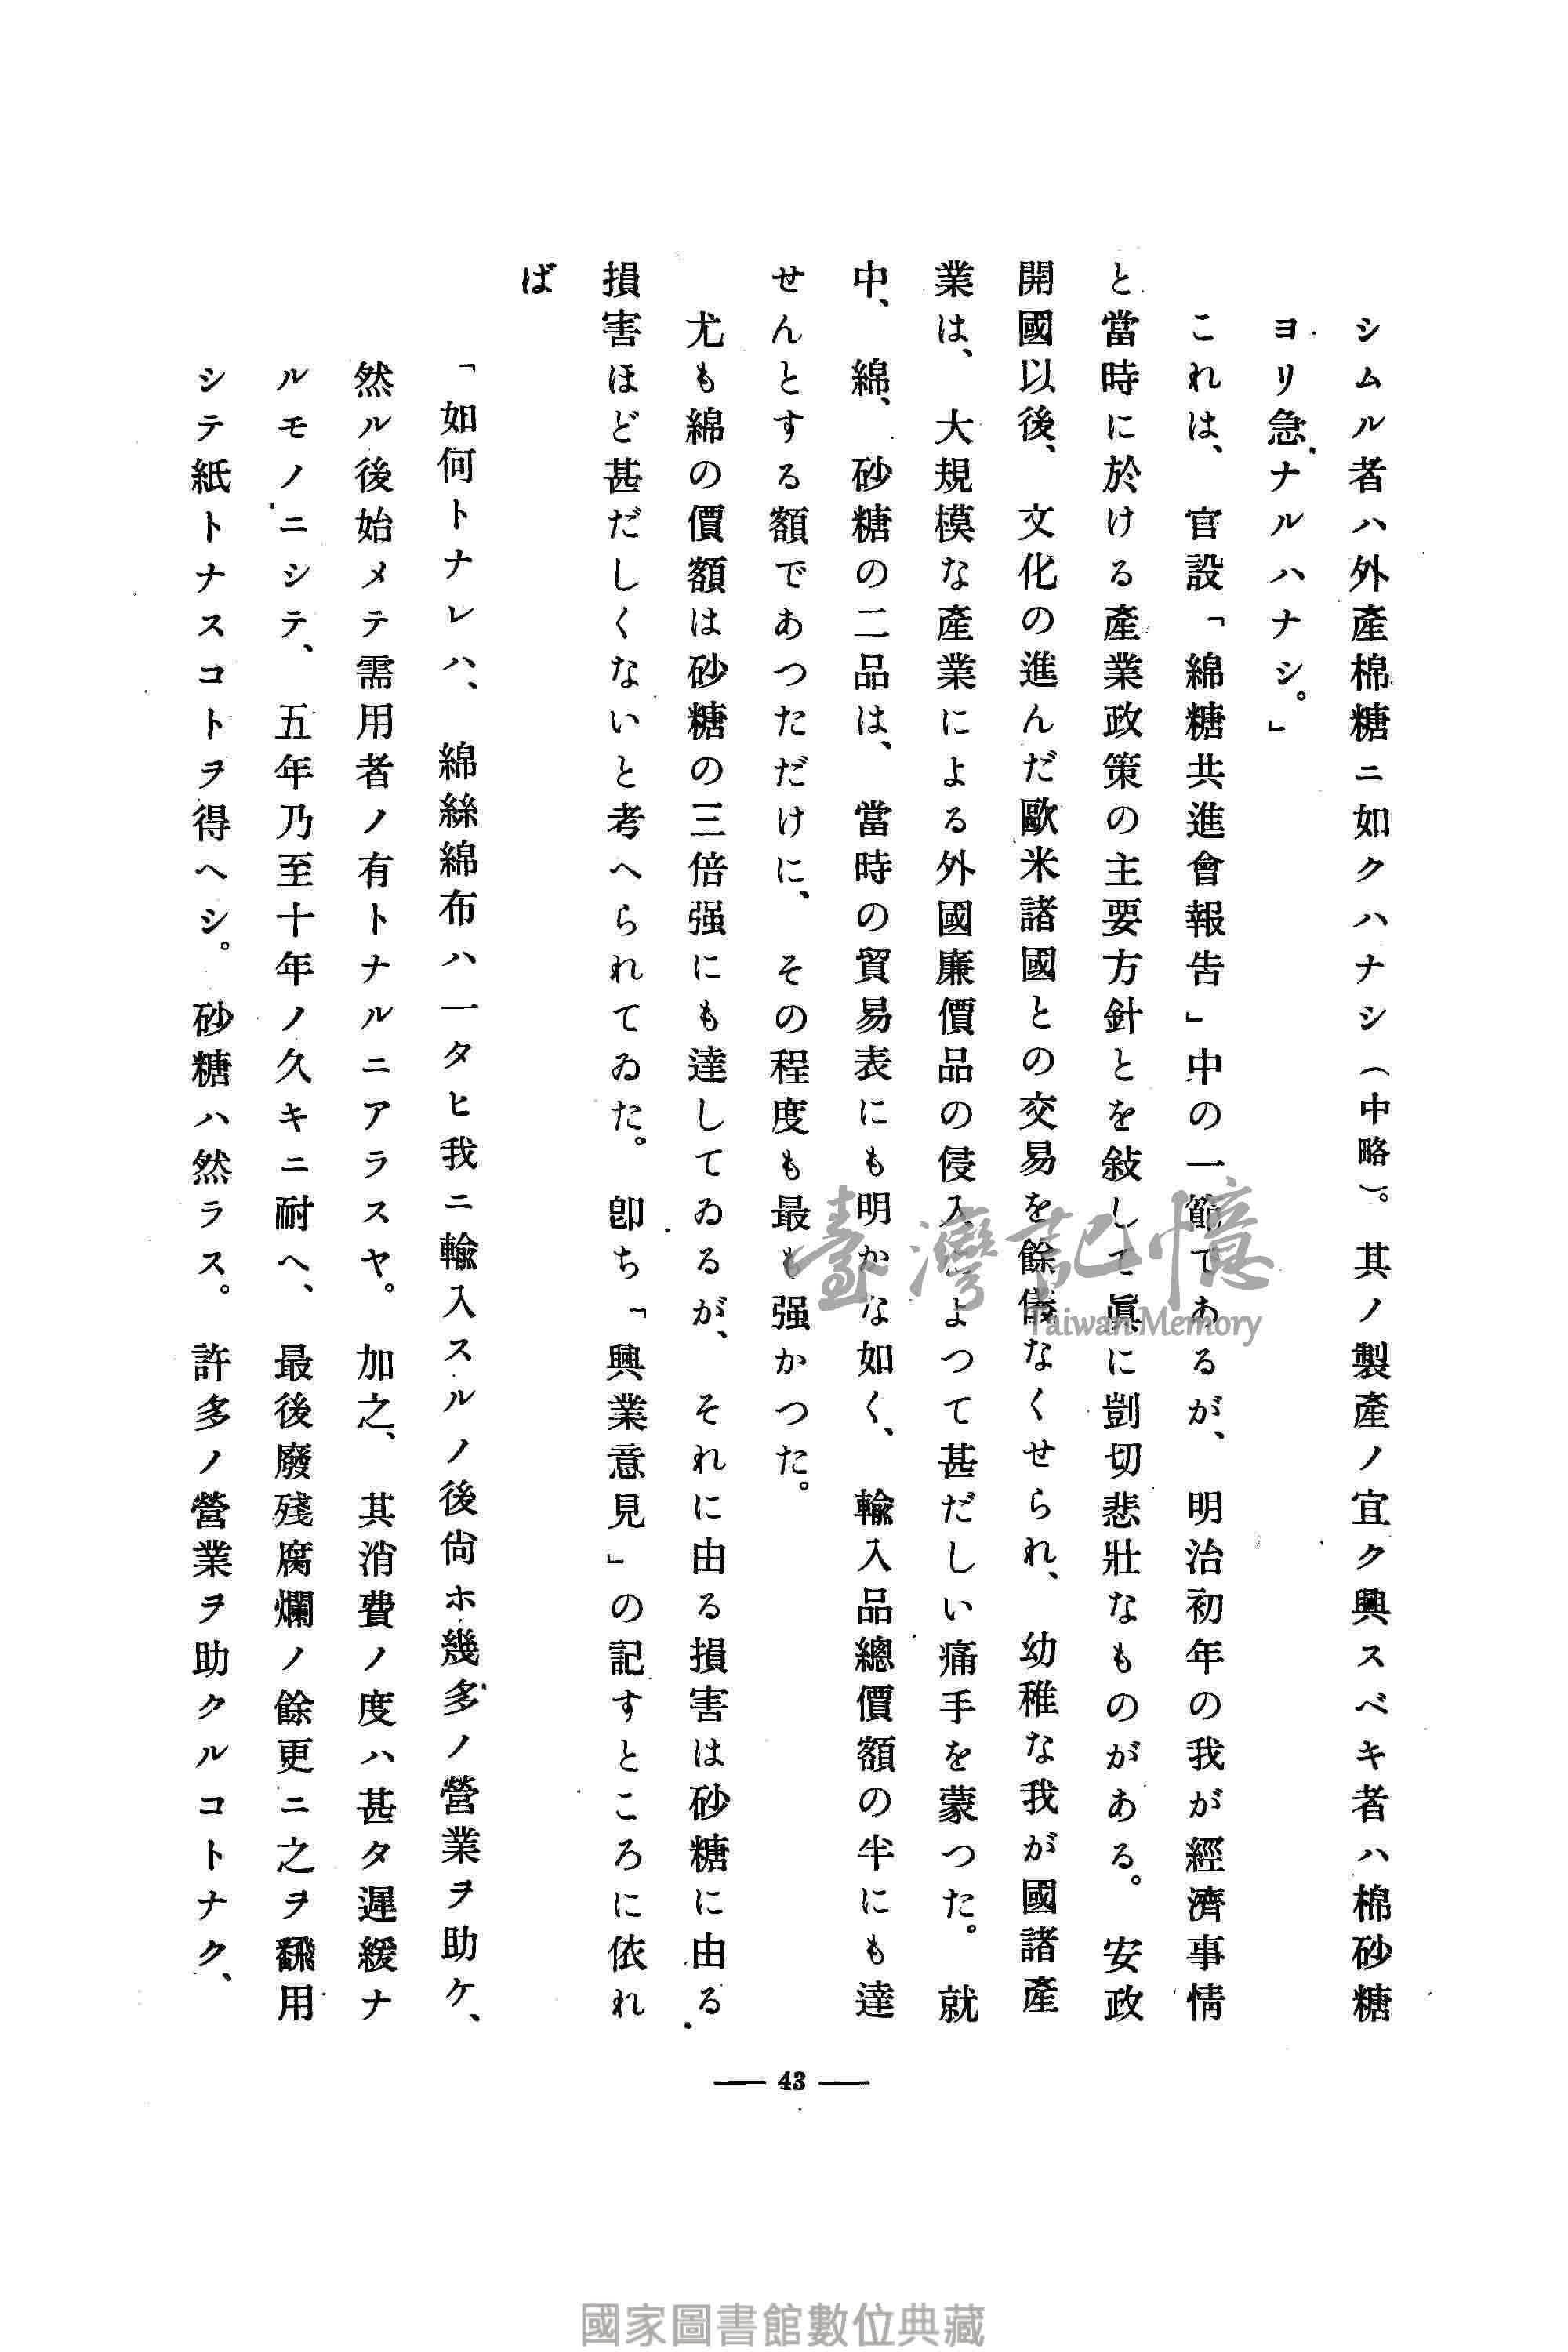 シムル者ハ外產棉糖ニ如クハナシ（中略）。其ノ製產ノ宜ク興スベキ者ハ棉砂糖
ヨリ急ナルハナシ。」
これは、官設「綿糖共進會報告」中の一節であるが、明治初年の我が經濟事情
と當時に於ける產業政策の主要方針とを敍して眞に剴切悲壯なものがある。安政
開國以後、文化の進んだ歐米諸國との交易を餘儀なくせられ、幼稚な我が國諸產
業は、大規模な產業による外國廉價品の侵入によつて甚だしい痛手を蒙つた。就
中、綿、砂糖の二品は、當時の貿易表にも明かな如く、輸入品總價額の半にも達
せんとする額であつただけに、その程度も最も强かつた。
尤も綿の價額は砂糖の三倍强にも達してゐるが、それに由る損害は砂糖に由る
損害ほど甚だしくないと考へられてゐた。卽ち「興業意見」の記すところに依れ
ば
「如何トナレハ、綿絲綿布ハ一タヒ我ニ輸入スルノ後尙ホ幾多ノ營業ヲ助ケ、
然ル後始メテ需用者ノ有トナルニアラスヤ。加之、其消費ノ度ハ甚タ遲緩ナ
ルモノニシテ、五年乃至十年ノ久キニ耐ヘ、最後廢殘腐爛ノ餘更ニ之ヲ飜用
シテ紙トナスコトヲ得ヘシ。砂糖ハ然ラス。許多ノ營業ヲ助クルコトナク、
43
臺灣記憶
Taiwan Memory
國家圖書館數位典藏